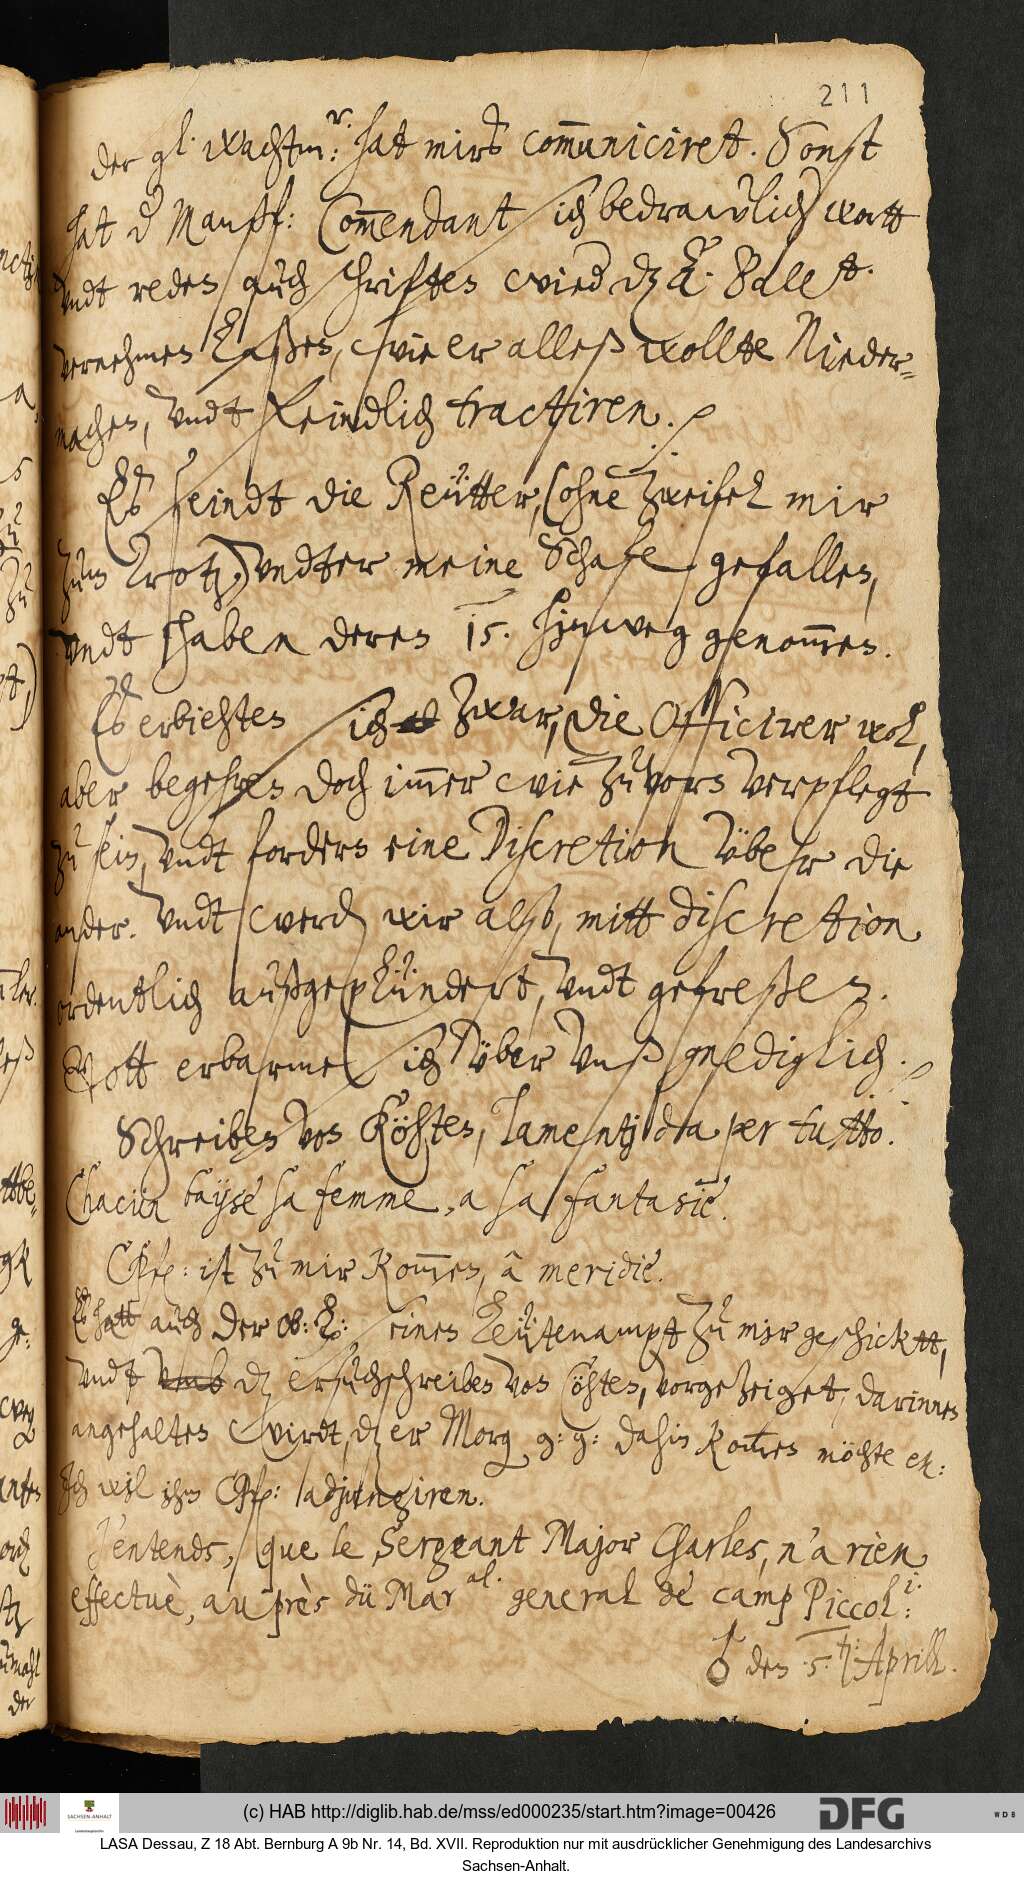 211
der gl. wachtm: r. hat mirs com̅uniciret. Sonst
hat d Manßf: Com̅endant sich bedrawlich wortt
vndt reden auch schriften wied dz L. Ballet.
vernehmen laßen, wie er alleß wollte Nieder=
machen, vndt feindlich tractiren.
Es seindt die Reütter, (ohne zweifel mir
zum Trotz) vndter meine Schafe gefallen,
vndt haben deren 15. hinweg genom̅en.
Es erbiehten sich zwar, die Officirer wol,
aber begehren doch im̅er wie zuvorn verpflegt
zu sein, vndt fordern eine Discretion vber die
ander. Vndt werd wir also, mitt discretion
ordentlich außgeplündert, vndt gefreßen.
Gott erbarme sich vber vnß gnediglich.
Schreiben von Köhten, lamentj dia per tutto.
Chacün bayse sa femme, a sa fantasie.
Cpf: ist zu mir kom̅en, à meridie.
Es hatt auch der ob: L: einen Leütenampt zu mir geschicktt,
vndt vmb dz ersuchschreiben von Cöhten, vorgezeiget, darinnen
angehalten wirdt, dz er Morg g: g: dahin kom̅en möchte ex:
Ich wil ihm Cpf: adjungiren.
J'entends, que le Sergeant Major Charles, n'a rien
effectuè, auprès dü Mar al. general de camp Piccol: i.
♂ den 5. t: Aprill.
(c) HAB http://diglib.hab.de/mss/ed000235/start.htm?image=00426
SACHSEN-ANHALT
DFG
WDB
LASA Dessau, Z 18 Abt. Bernburg A 9b Nr. 14, Bd. XVII. Reproduktion nur mit ausdrücklicher Genehmigung des Landesarchivs
Sachsen-Anhalt.